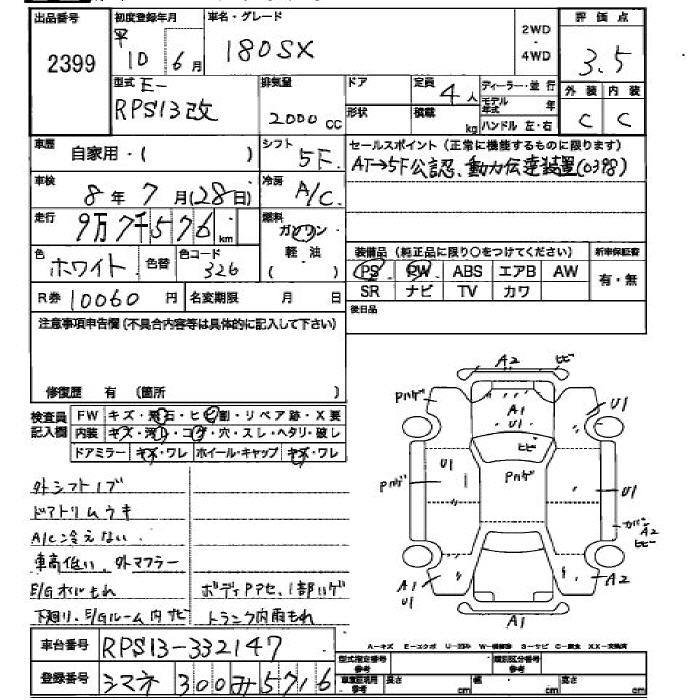 出品番号
2399
初度登録年月
平
10 年 6 月
車名・グレード
180SX
2WD
・
4WD
評価点
3.5
型式 E-
RPS13改
排気量
2000 cc
ドア
形状
定員 4 人
積載 kg
ディーラー・並行
モデル年式 年
ハンドル 左・右
外装 内装
C C
車歴
自家用・( )
シフト
5F
セールスポイント (正常に機能するものに限ります)
AT→5F公認、動力伝達装置(0398)
車検
8 年 7 月(28日)
冷房
A/C
走行
9万7千576 km
燃料
ガソリン
軽・油
( )
色
ホワイト
色替
色コード
326
装備品 (純正品に限り○をつけてください)
PS PW ABS エアB AW
SR ナビ TV カワ
新車保証書
有・無
R券 10060 円
名変期限 月 日
後日品
注意事項申告欄(不具合内容等は具体的に記入して下さい)
修復歴 有 (箇所 )
検査員
記入欄
FW キズ・飛石・ヒビ割・リペア跡・X要
内装 キズ・汚れ・コゲ・穴・スレ・ヘタリ・破し
ドアミラー キズ・ワレ ホイール・キャップ キズ・ワレ
外シフトノブ
ドアトリムウキ
A/C冷えない
車高低い、外マフラー
E/Gオイルもれ
下廻り、E/Gルーム内サビ
ボディPアセ、1部ハゲ
トランク内雨もれ
A2 ヒビ
Pハゲ
A1
U1
U1
ヒビ
Pハゲ
U1
Pハゲ
U1
A2
ヒビ
A1
U1
A2
A1
車台番号
RPS13-332147
登録番号
シマネ 300 み 5716
A-キズ E-エクボ U-凹み W-補修跡 S-サビ C-腐食 XX-交換済
型式指定番号
参考
類別区分番号
参考
車庫証明用
参考
長さ cm
幅 cm
高さ cm